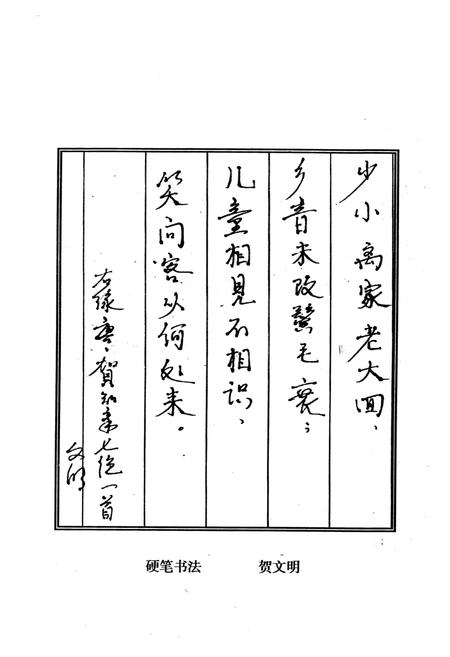 少小离家老大回、
乡音未改鬓毛衰；
儿童相見不相识、
笑问客从何处来。
右録唐·賀知章七绝一首
文明
硬笔书法 贺文明